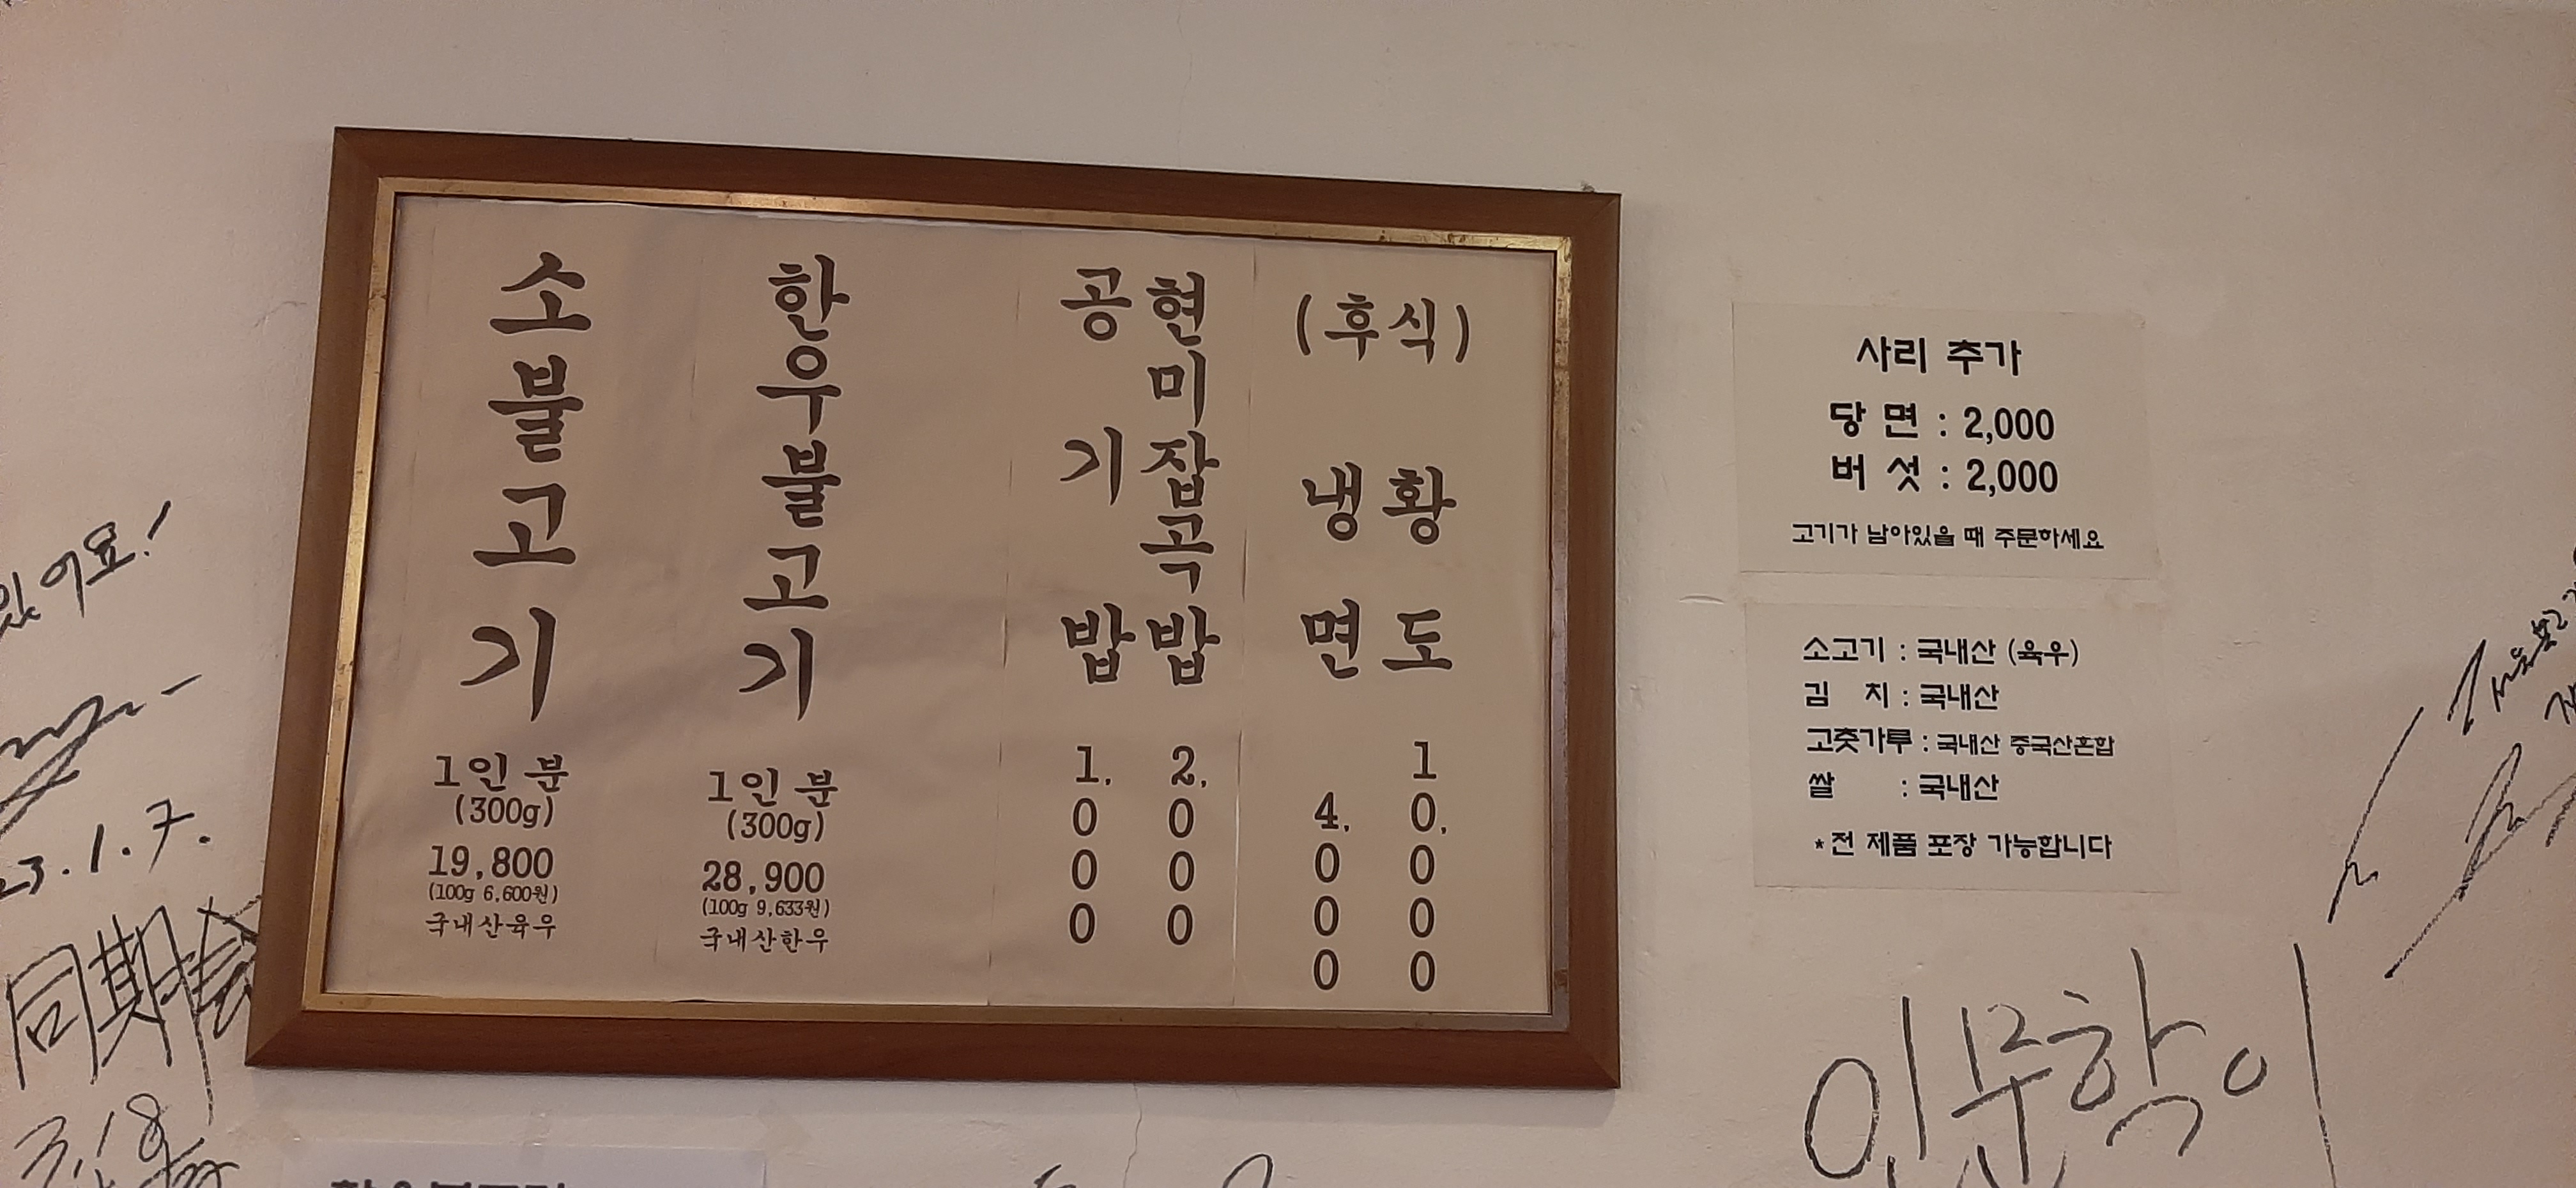 소불고기
1인분
(300g)
19,800
(100g 6,600원)
국내산육우
한우불고기
1인분
(300g)
28,900
(100g 9,633원)
국내산한우
공기밥
1,000
현미잡곡밥
2,000
(후식)
냉면
4,000
황도
10,000
사리 추가
당면 : 2,000
버섯 : 2,000
고기가 남아있을 때 주문하세요
소고기 : 국내산 (육우)
김 치 : 국내산
고춧가루 : 국내산 중국산혼합
쌀 : 국내산
*전 제품 포장 가능합니다
있어요!
23.1.7.
同期会